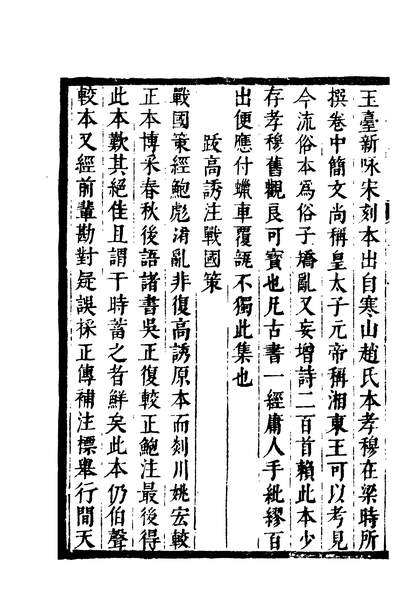 玉臺新咏宋刻本出自寒山趙氏本孝穆在梁時所
撰卷中簡文尚稱皇太子元帝稱湘東王可以考見
今流俗本為俗子矯亂又妄增詩二百首賴此本少
存孝穆舊觀良可寶也凡古書一經庸人手紕繆百
出便應付蠟車覆瓿不獨此集也
跋高誘注戰國策
戰國策經鮑彪淆亂非復高誘原本而剡川姚宏較
正本博采春秋後語諸書吳正復較正鮑注最後得
此本歎其絕佳且謂于時蓄之者鮮矣此本仍伯聲
較本又經前輩勘對疑誤採正傳補注標舉行間天